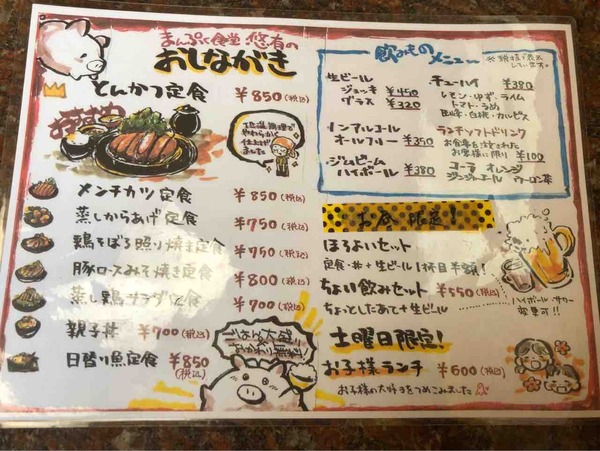 まんぷく食堂 悠有の
おしながき
とんかつ定食 ¥850(税込)
おすすめ
低温調理で
やわらかく
仕上げ
ました
メンチカツ定食 ¥850(税込)
蒸しからあげ定食 ¥750(税込)
鶏そぼろ照り焼き定食 ¥750(税込)
豚ロースみそ焼き定食 ¥800(税込)
蒸し鶏サラダ定食 ¥700(税込)
親子丼 ¥700(税込)
日替り魚定食 ¥850(税込)
ごはん大盛
おかわり無料!
飲みものメニュー
※税抜表示
しています。
生ビール
ジョッキ ¥450
グラス ¥320
ノンアルコール
オールフリー ¥350
ジムビーム
ハイボール ¥380
チューハイ ¥380
レモン・ゆず・ライム
トマト・うめ
巨峰・白桃・カルピス
ランチソフトドリンク
お食事を注文された
お客様に限り ¥100
コーラ オレンジ
ジンジャエール ウーロン茶
お昼限定!
ほろよいセット
定食・丼+生ビール1杯目半額!
ちょい飲みセット ¥550(税込)
ちょっとしたあて+生ビール
ハイボール・サワー
変更可!!
土曜日限定!
お子様ランチ ¥500(税込)
お子様の大好きをつめこみました